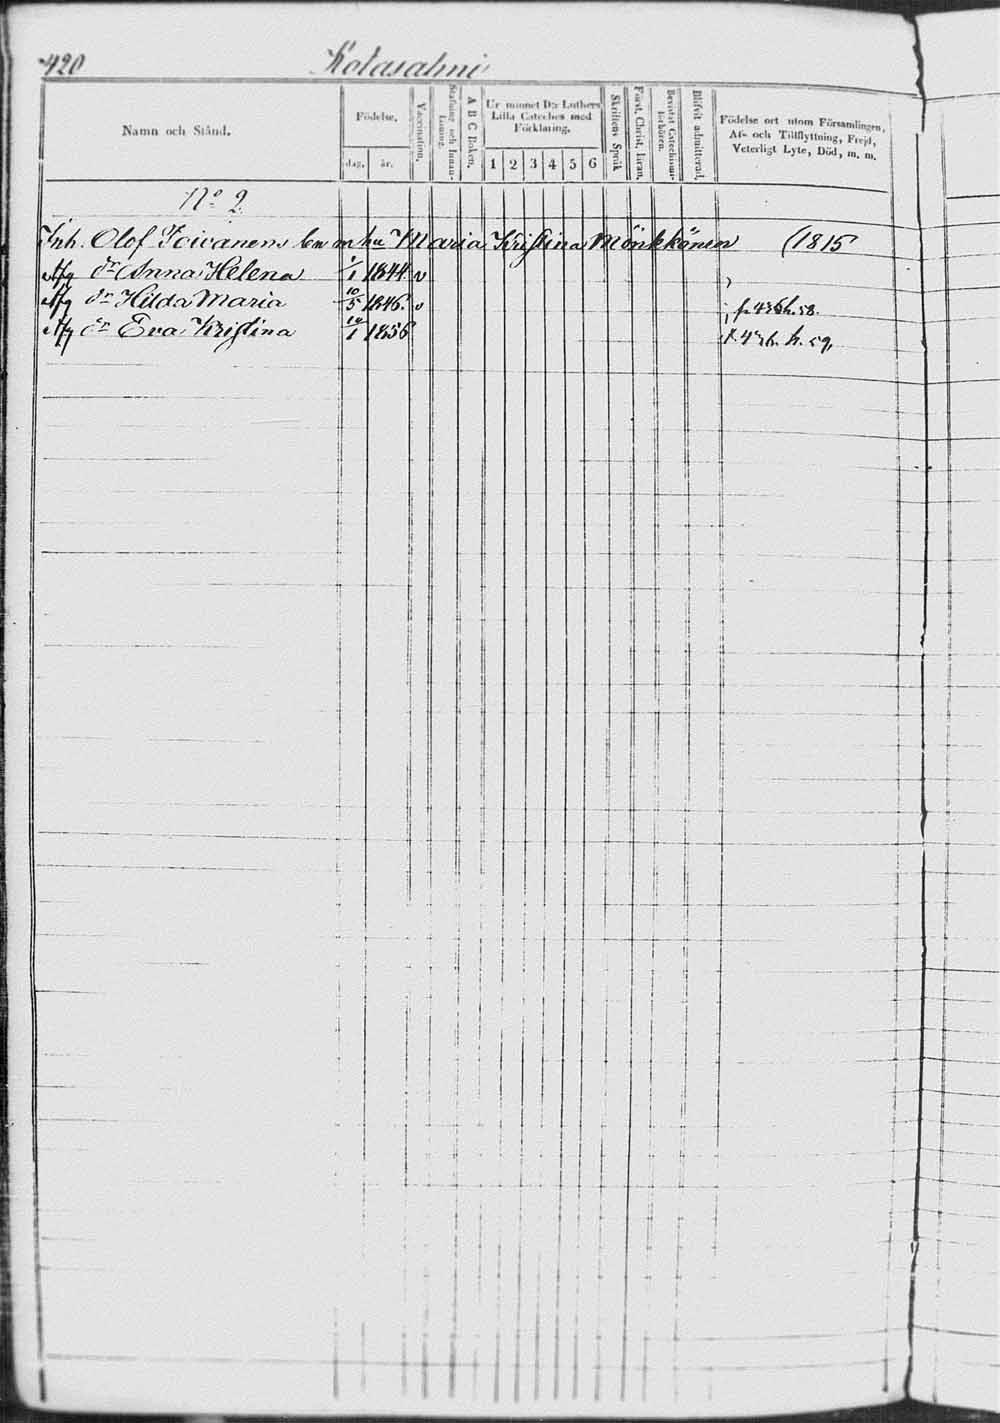 420 Kotasalmi
Namn och Stånd.
Födelse,
dag, år.
Vaccination.
Stafning och Innan-läsning.
A B C Boken.
Ur minnet D:r Luthers Lilla Cateches med Förklaring.
1 2 3 4 5 6
Skriftens Språk
Först. Christ. läran.
Bevistat Catechismi-förhören.
Blifvit admitterad.
Födelse ort utom Församlingen, Af- och Tillflyttning, Frejd, Veterligt Lyte, Död, m. m.
No 2.
Inh. Olof Toivanens hu Maria Kristina Mönkkönen (1815
Afg dr Anna Helena 1/1 1844 v
Afg dr Hilda Maria 10/5 1846. v f. 436 h. 58.
Afg dr Eva Kristina 14/1 1856 f. 436. h. 59,